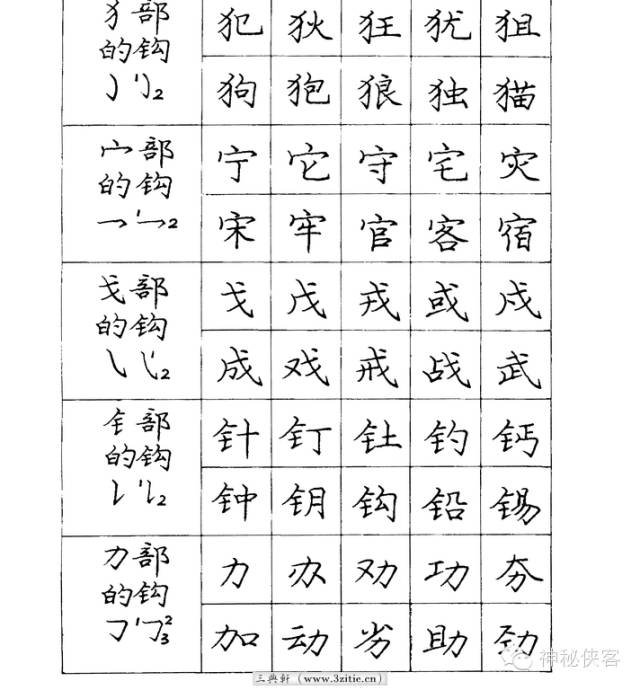 犭部
的钩
犯狄狂犹狙
狗狍狼独猫
宀部
的钩
宁它守宅灾
宋牢官客宿
戈部
的钩
戈戊戎或戍
成戏戒战武
钅部
的钩
针钉钍钓钙
钟钥钩铅锡
力部
的钩
力办劝功夯
加动劣助劲
三典轩(www.3zitie.cn)
神秘侠客